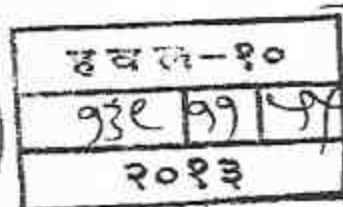 हवल-१०
१३९ ११ ५५
२०१३